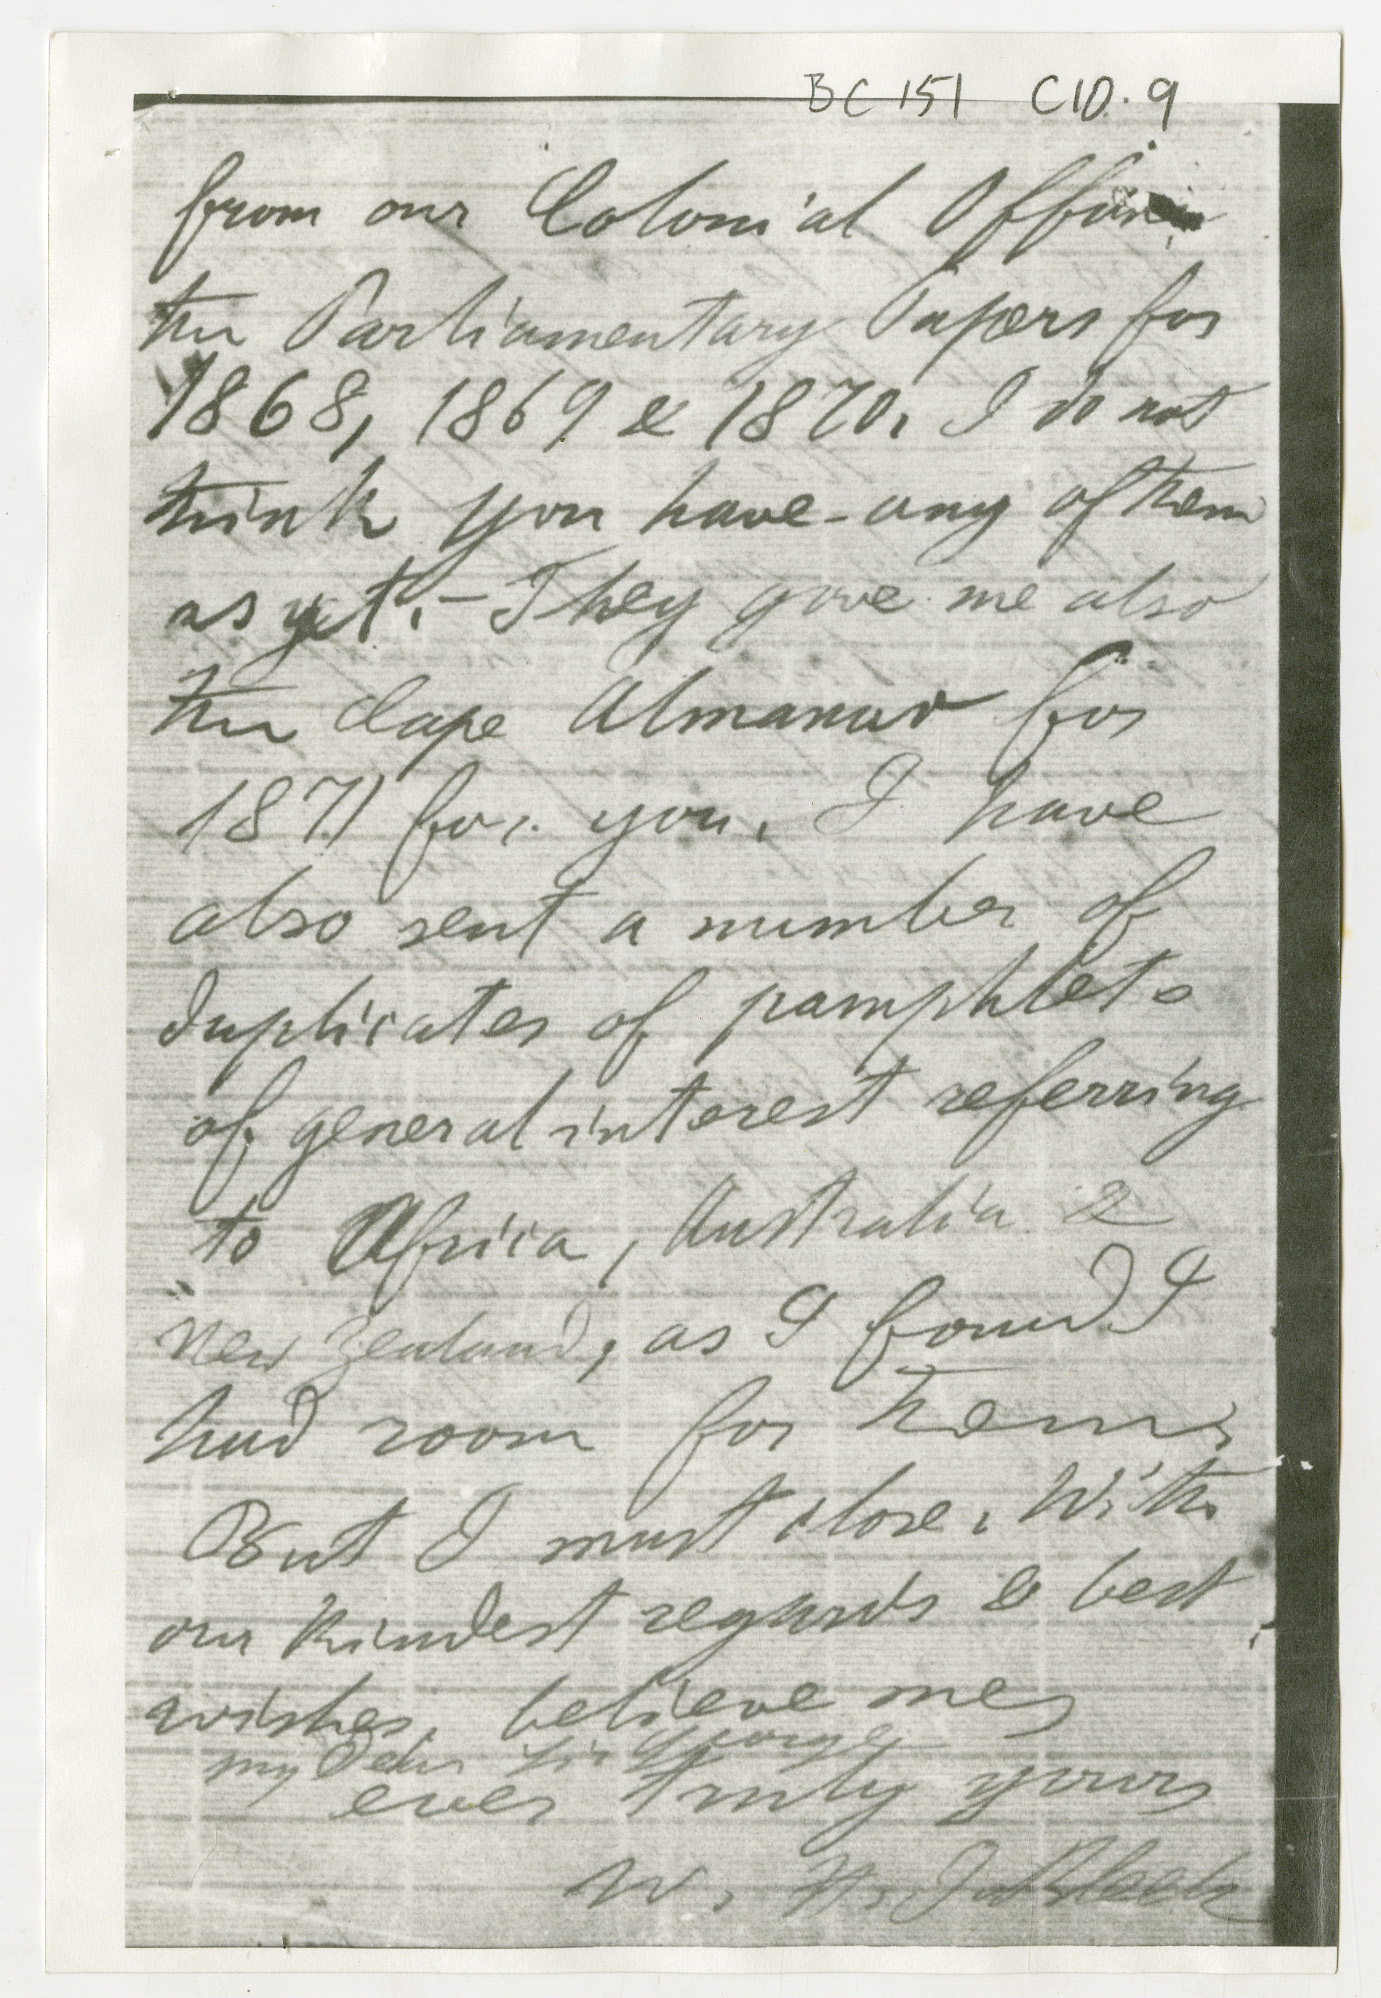 BC 151 C10.9
from our Colonial Office
the Parliamentary Papers for
1868, 1869 & 1870. I do not
think you have any of them
as yet. – They gave me also
the Cape Almanac for
1871 for you. I have
also sent a number of
duplicates of pamphlets
of general interest referring
to Africa, Australia &
New Zealand, as I found I
had room for them.
But I must close. With
our kindest regards & best
wishes, believe me,
my dear Sir George
ever truly yours
W. H. I. Bleek